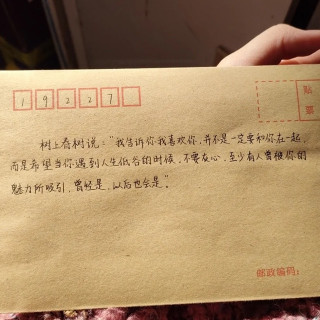 19227
贴
票
树上春树说："我告诉你我喜欢你，并不是一定要和你在一起，
而是希望当你遇到人生低谷的时候，不要灰心，至少有人曾被你的
魅力所吸引，曾经是，以后也会是"。
邮政编码：